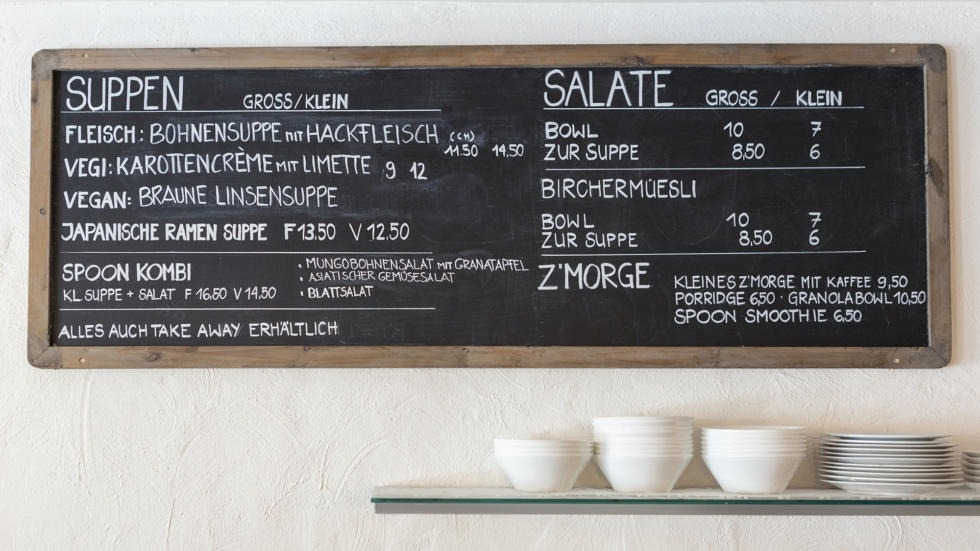 SUPPEN GROSS/KLEIN
FLEISCH: BOHNENSUPPE MIT HACKFLEISCH (CH)
11.50 14,50
VEGI: KAROTTENCRÈME MIT LIMETTE 9 12
VEGAN: BRAUNE LINSENSUPPE
JAPANISCHE RAMEN SUPPE F 13.50 V 12,50
SPOON KOMBI
KL. SUPPE + SALAT F 16,50 V 14,50
• MUNGOBOHNENSALAT MIT GRANATAPFEL
• ASIATISCHER GEMÜSESALAT
• BLATTSALAT
ALLES AUCH TAKE AWAY ERHÄLTLICH
SALATE GROSS / KLEIN
BOWL 10 7
ZUR SUPPE 8,50 6
BIRCHERMÜESLI
BOWL 10 7
ZUR SUPPE 8,50 6
Z'MORGE
KLEINES Z'MORGE MIT KAFFEE 9,50
PORRIDGE 6,50 · GRANOLABOWL 10,50
SPOON SMOOTHIE 6,50